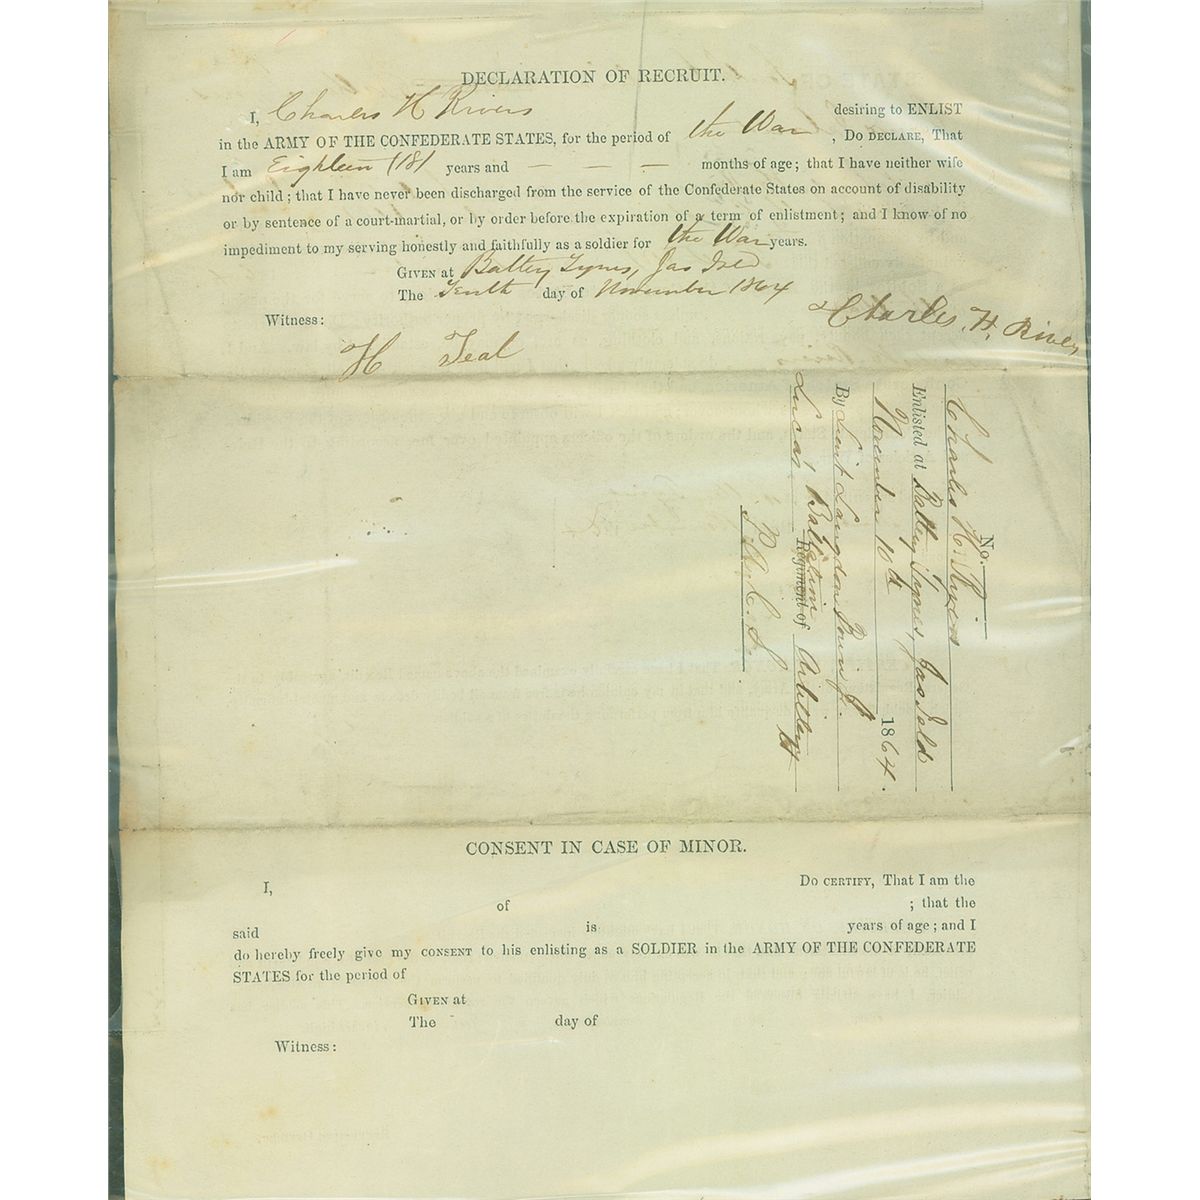 DECLARATION OF RECRUIT.
I, Charles H Rivers desiring to ENLIST
in the ARMY OF THE CONFEDERATE STATES, for the period of the War , DO DECLARE, That
I am Eighteen (18) years and — — — months of age; that I have neither wife
nor child; that I have never been discharged from the service of the Confederate States on account of disability
or by sentence of a court-martial, or by order before the expiration of a term of enlistment; and I know of no
impediment to my serving honestly and faithfully as a soldier for the War years.
GIVEN at Battery Tynes, Jas Isld
The Tenth day of November 1864
Witness:
Charles, H, Rivers
H Teal
No.
Charles H. Rivers
Enlisted at Battery Tynes, Jas Isld
November 10th 1864.
By Lieut Langdon
Lucas' Battalion Regiment of Artillery
CONSENT IN CASE OF MINOR.
I, DO CERTIFY, That I am the
of ; that the
said is years of age; and I
do hereby freely give my CONSENT to his enlisting as a SOLDIER in the ARMY OF THE CONFEDERATE
STATES for the period of
GIVEN at
The day of
Witness: